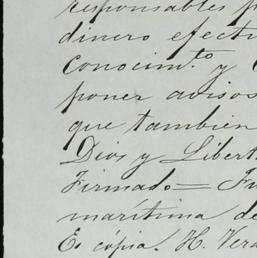 responsables p
dinero efecti
conocimto y
poner avisos
que tambien
Dios y Libert
Firmado=
maritima de
Es cópia. H. Vera